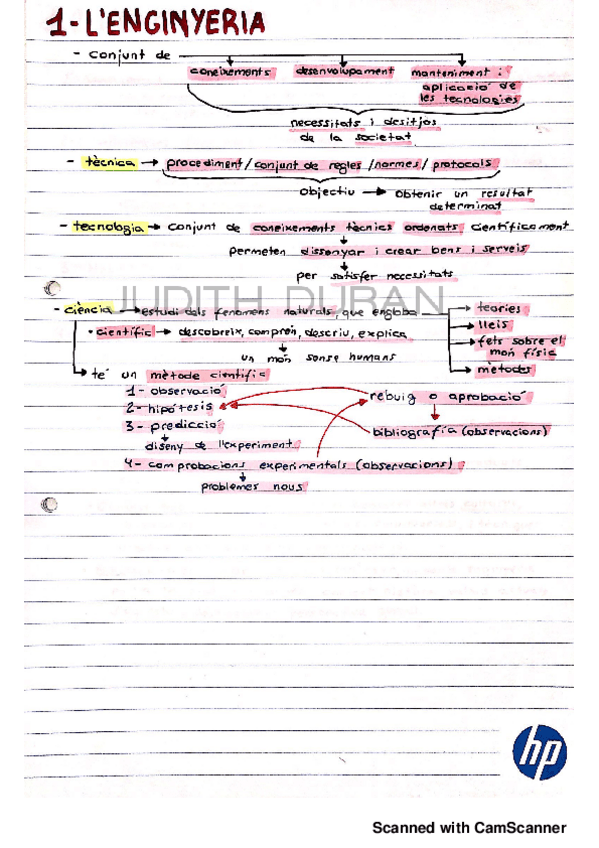 1- L'ENGINYERIA
- conjunt de
coneixements desenvolupament manteniment:
aplicació de
les tecnologies
necessitats i desitjos
de la societat
- tècnica → procediment / conjunt de regles / normes / protocols
objectiu → obtenir un resultat
determinat
- tecnologia → conjunt de coneixements tècnics ordenats científicament
permeten dissenyar i crear bens i serveis
per satisfer necessitats
JUDITH DURAN
- ciència → estudi dels fenomens naturals, que engloba → teories
→ lleis
· científic → descobreix, comprèn, descriu, explica
→ fets sobre el
món físic
un món sense humans
→ mètodes
→ té un mètode científic
1- observació
rebuig o aprobació
2- hipòtesis
3- predicció
bibliografía (observacions)
diseny de l'experiment
4- comprobacions experimentals (observacions)
problemes nous
hp
Scanned with CamScanner